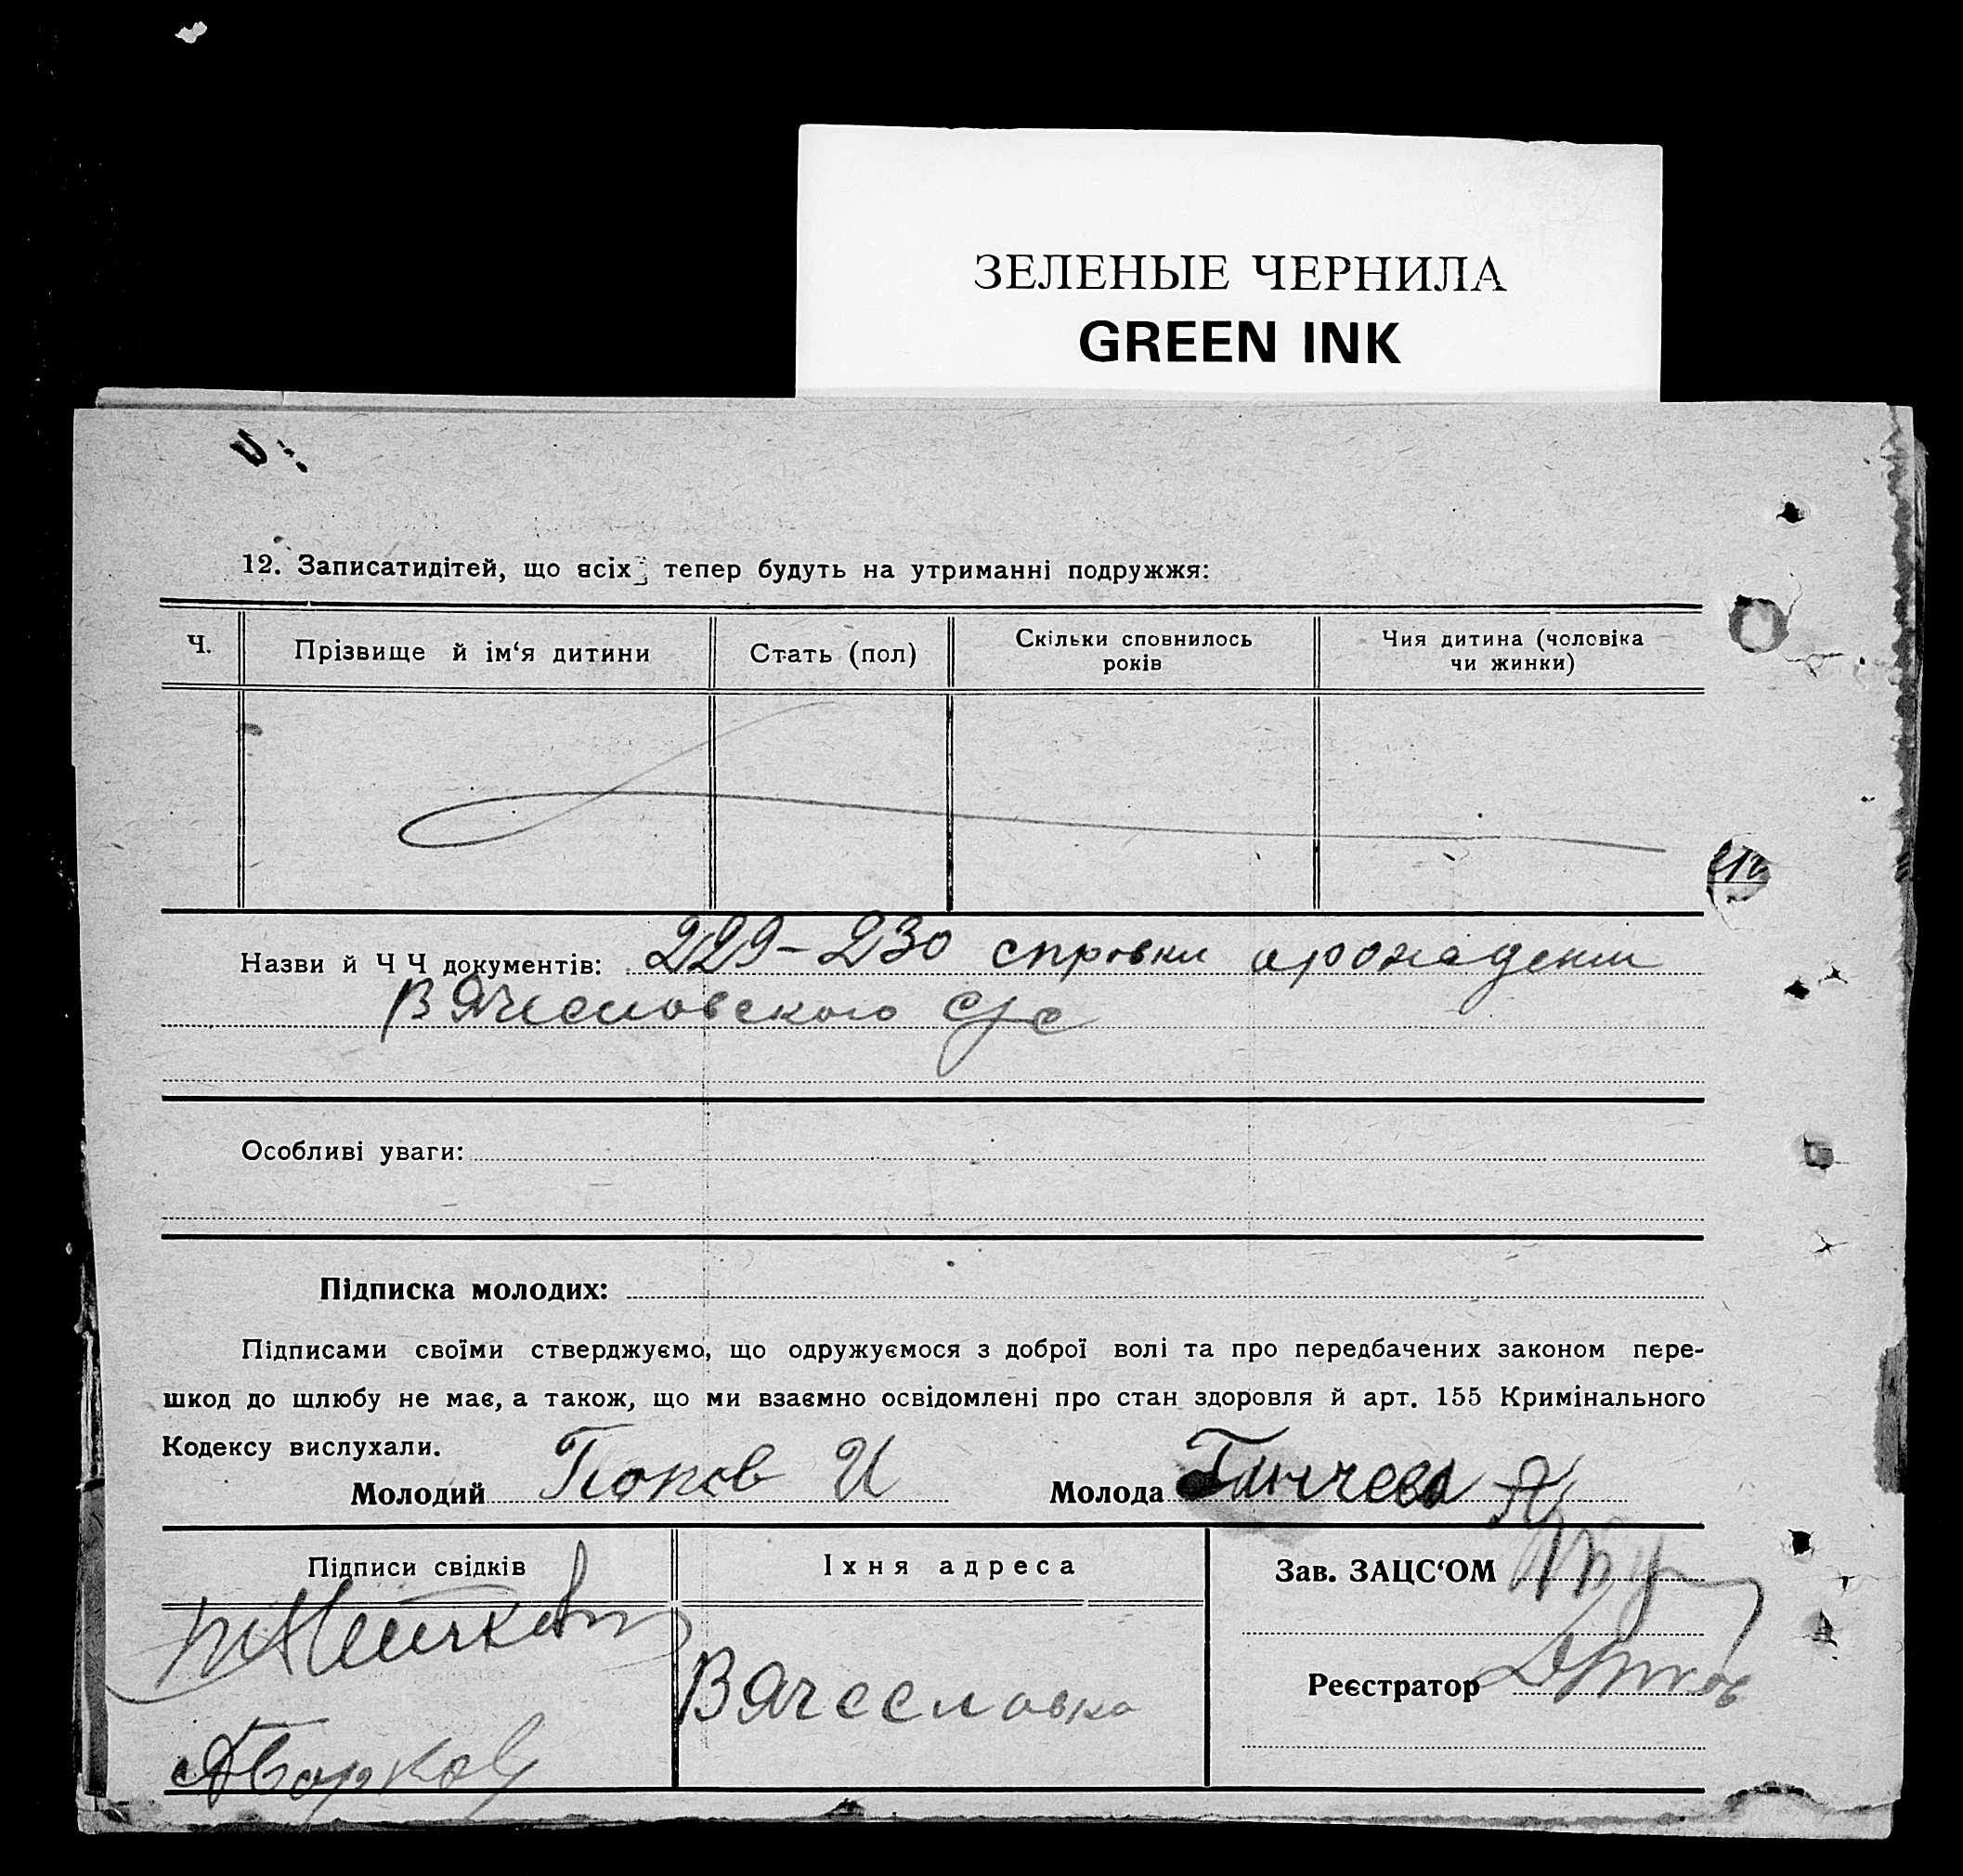 ЗЕЛЕНЫЕ ЧЕРНИЛА
GREEN INK
12. Записатидітей, що всіх тепер будуть на утриманні подружжя:
Ч.
Прізвище й ім‘я дитини
Стать (пол)
Скільки сповнилось
років
Чия дитина (чоловіка
чи жинки)
Назви й Ч Ч документів: 229-230 справки о рождении
Вячесловского с/с
Особливі уваги:
Підписка молодих:
Підписами своїми стверджуємо, що одружуємося з доброї волі та про передбачених законом пере-
шкод до шлюбу не має, а також, що ми взаємно освідомлені про стан здоровля й арт. 155 Кримінального
Кодексу вислухали.
Молодий Попов И Молода Ганчева А
Підписи свідків
Іхня адреса
Зав. ЗАЦС‘ОМ
Вячесловка
Реєстратор